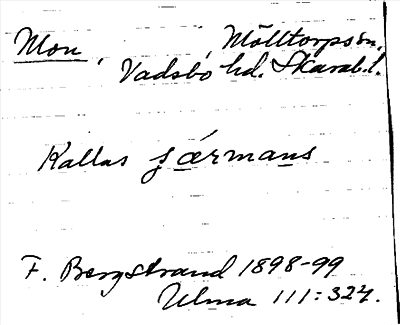 Mon, Mölltorps sn.
Vadsbo hd. Skarab.l.
Kallas færmans
F. Bergstrand 1898-99
Ulma 111:324.